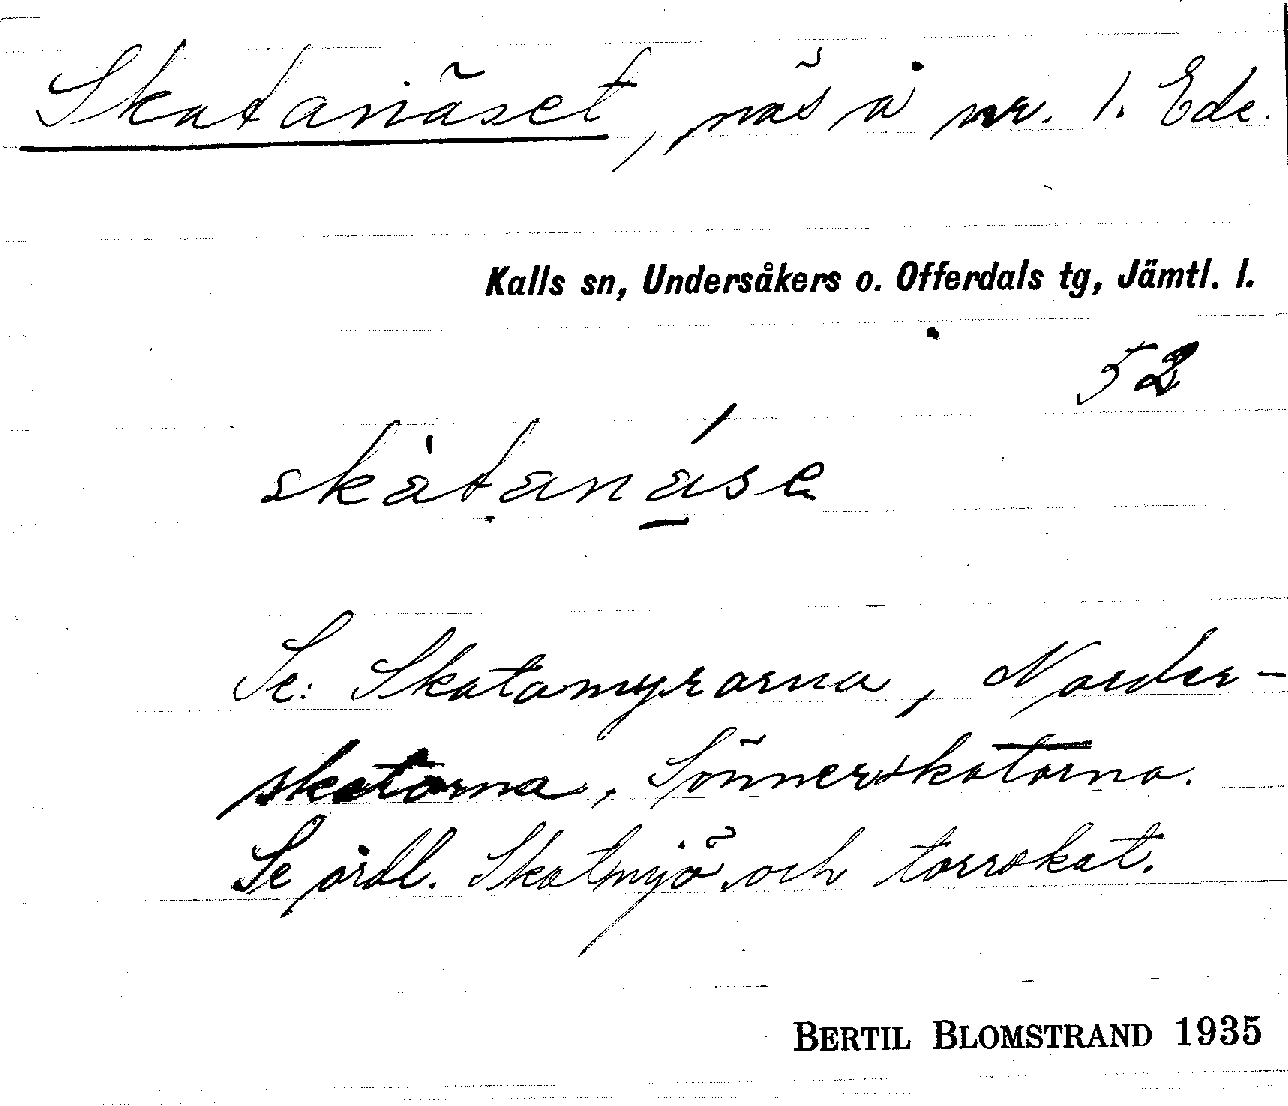 Skatanäset, näs å nr. 1. Ede.
Kalls sn, Undersåkers o. Offerdals tg, Jämtl. l.
52
skàtanáse
Se: Skatamyrarna, Norder-
skatarna, Sönnerskatarna.
Se ordl. Skatmjö och torrskat.
BERTIL BLOMSTRAND 1935